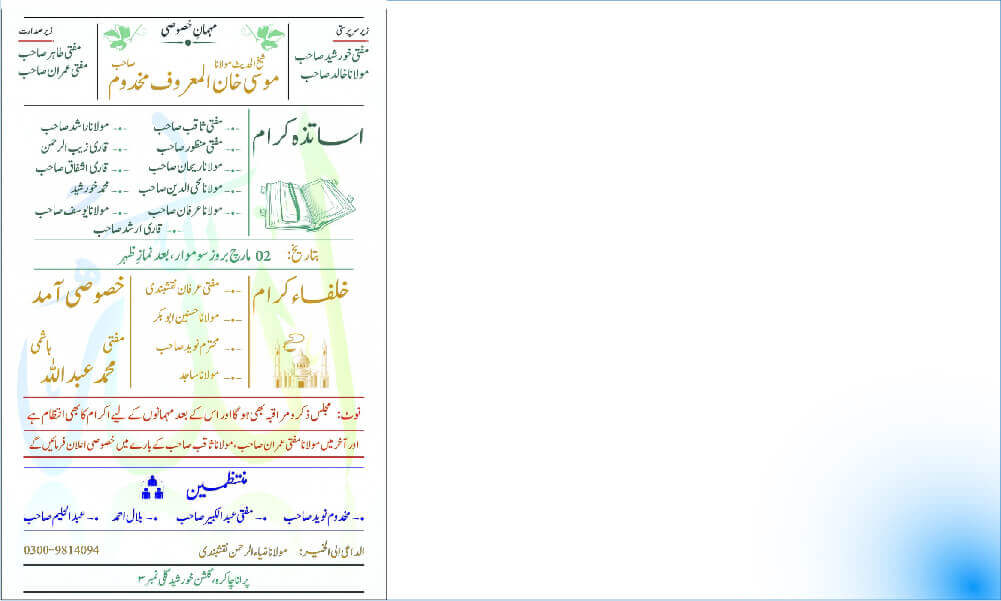 زیر سرپرستی
مفتی خورشید صاحب
مولانا خالد صاحب
مہمان خصوصی
شیخ الحدیث مولانا صاحب
موسیٰ خان المعروف مخدوم
زیر صدارت
مفتی طاہر صاحب
مفتی عمران صاحب
اساتذہ کرام
مفتی ثاقب صاحب
مولانا راشد صاحب
مفتی منظور صاحب
قاری زیب الرحمن
مولانا ریحان صاحب
قاری اشفاق صاحب
مولانا محی الدین صاحب
محمد خورشید
مولانا عرفان صاحب
مولانا یوسف صاحب
قاری ارشد صاحب
بتاریخ: 02 مارچ بروز سوموار، بعد نماز ظہر
خلفاء کرام
مفتی عرفان نقشبندی
مولانا حسنین ابو بکر
محترم نوید صاحب
مولانا ساجد
خصوصی آمد
مفتی ہاشمی
محمد عبد اللہ
نوٹ: مجلس ذکر و مراقبہ بھی ہو گا اور اس کے بعد مہمانوں کے لیے اکرام کا بھی انتظام ہے
اور آخر میں مولانا مفتی عمران صاحب، مولانا ثاقب صاحب کے بارے میں خصوصی اعلان فرمائیں گے
منتظمین
مخدوم نوید صاحب
مفتی عبد الکبیر صاحب
بلال احمد
عبد الحلیم صاحب
الداعی الی الخیر: مولانا ضیاء الرحمن نقشبندی 0300-9814094
پرانا چاکرہ، گلشن خورشید گلی نمبر ۳